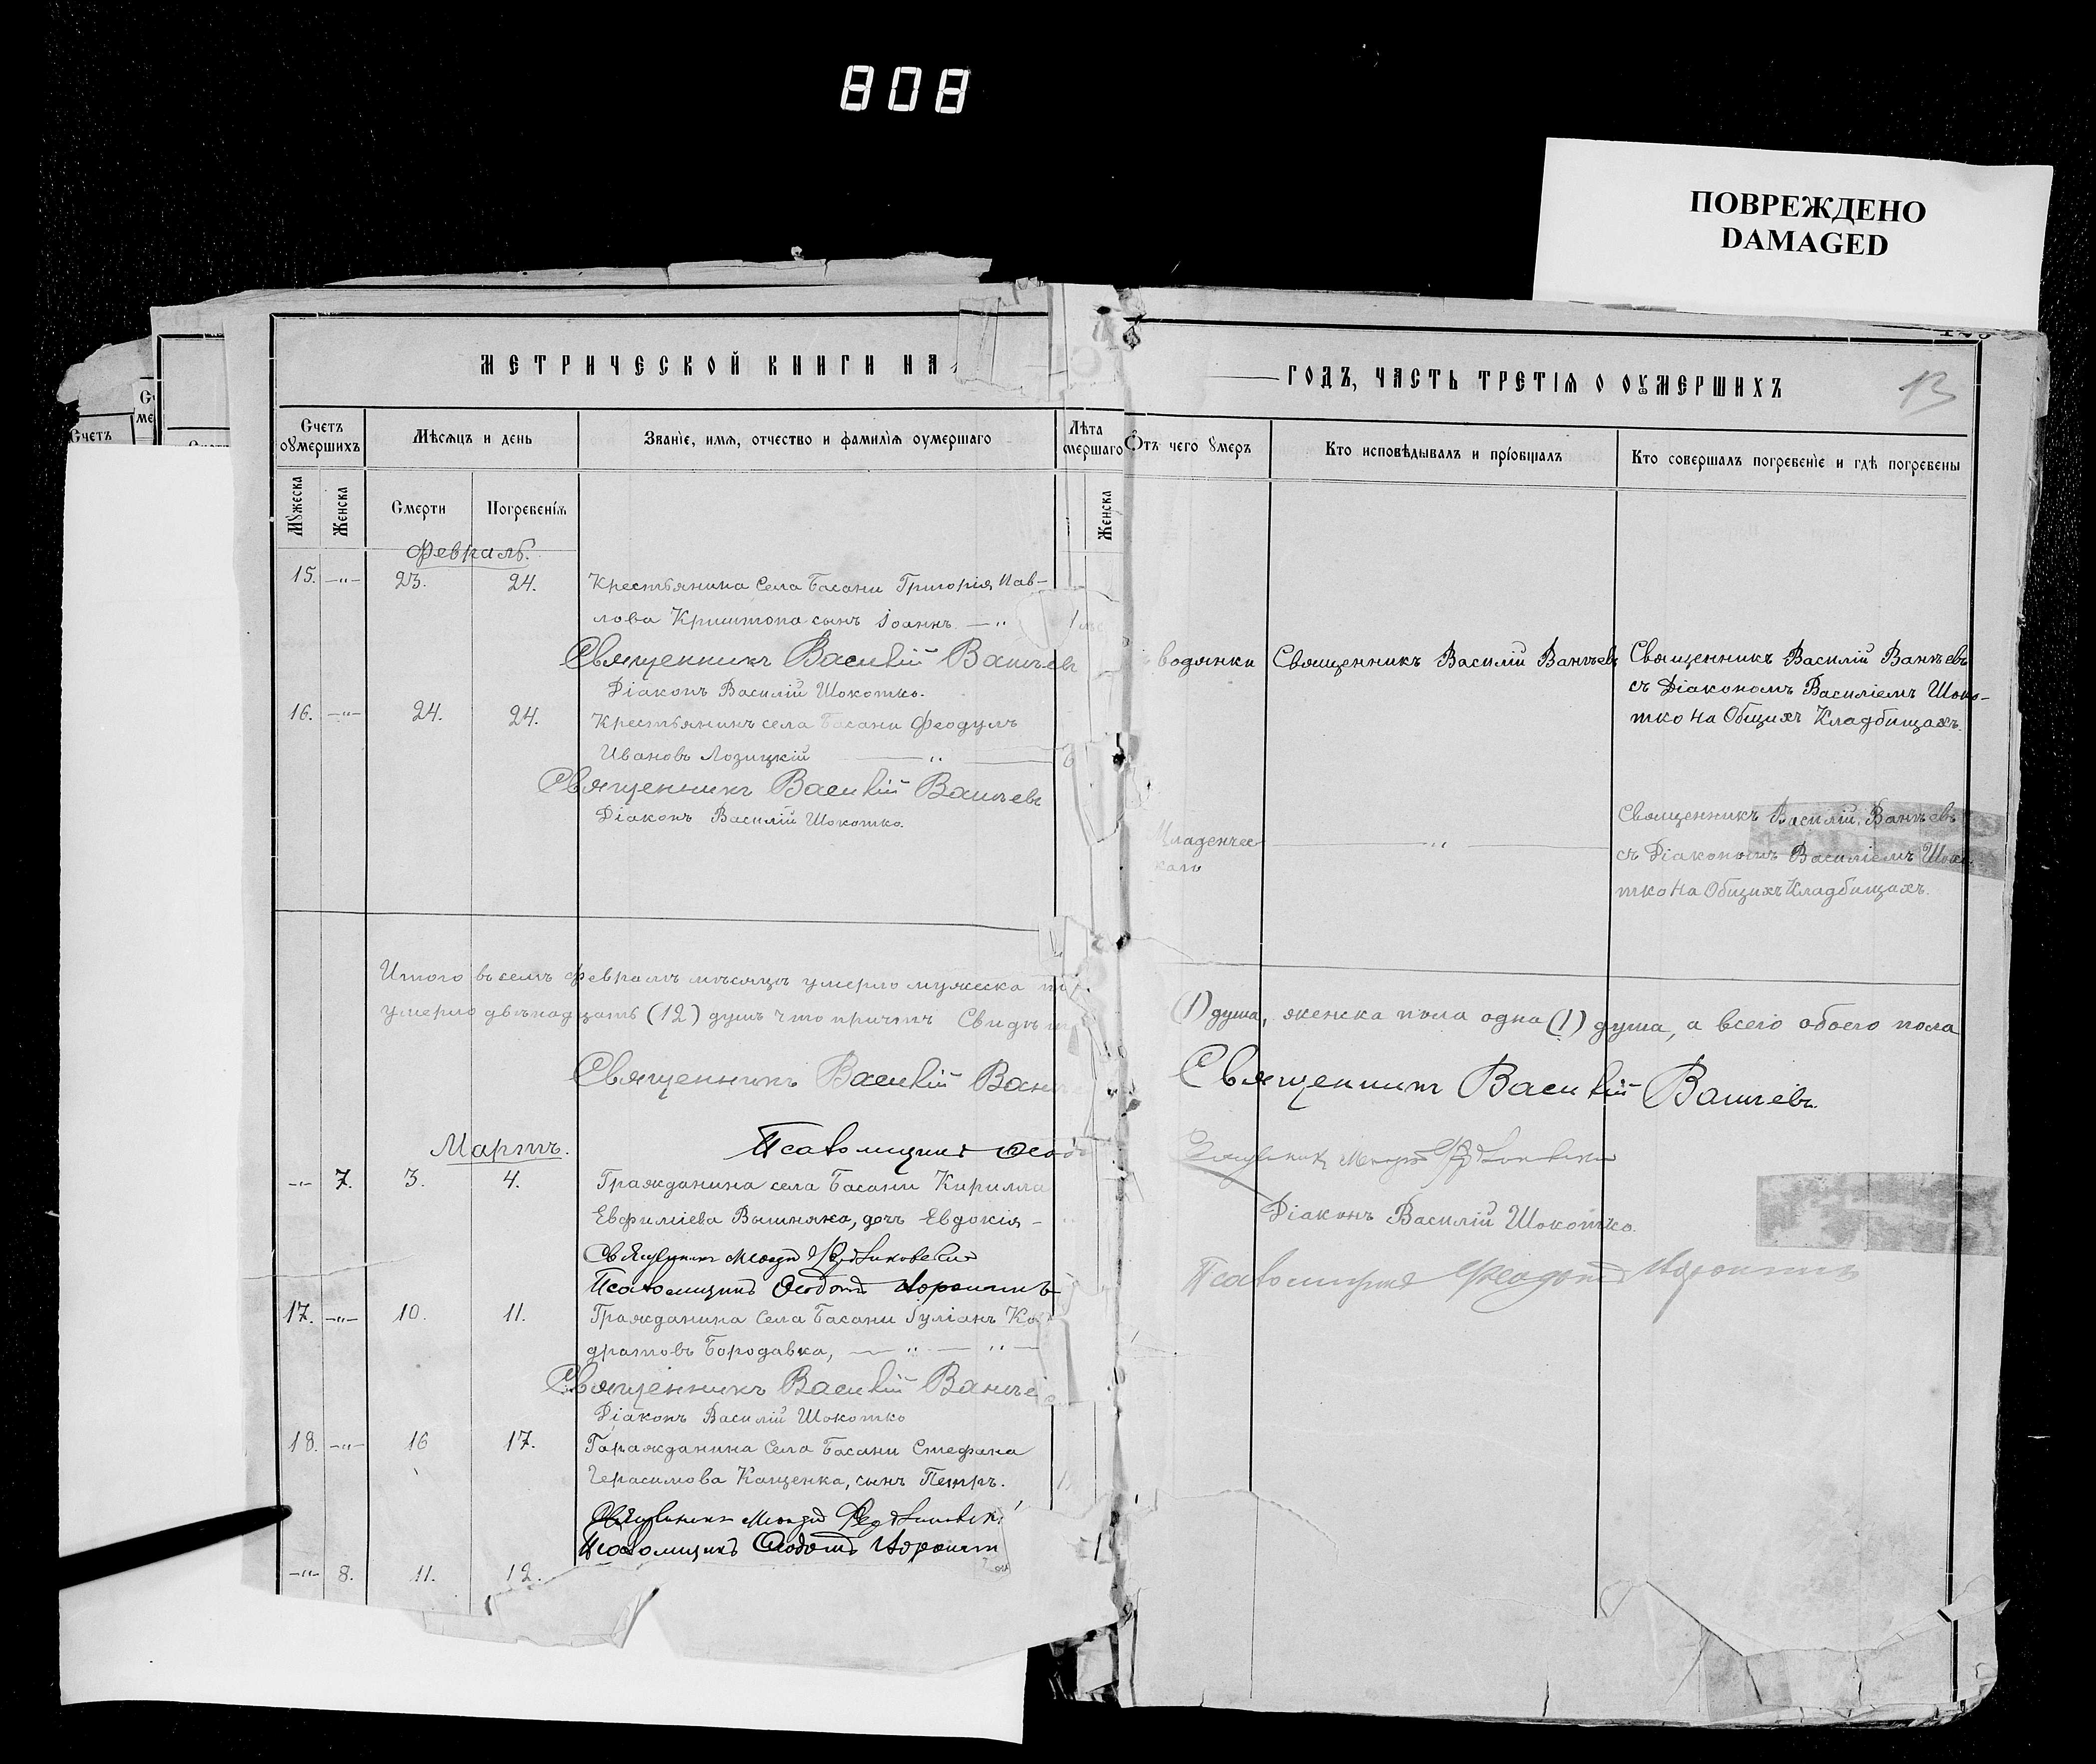 808
ПОВРЕЖДЕНО
DAMAGED
МЕТРИЧЕСКОЙ КНИГИ НА
Счетъ оумершихъ
Мѣсяцъ и день
Званіе, имя, отчество и фамилія оумершаго
Лѣта
мершаго
Мужеска
Женска
Смерти
Погребенія
Женска
Февраль.
15. —"— 23. 24. Крестьянина Села Басани Григорія Пав-
лова Криштопа сынъ Іоаннъ — "
Священникъ Василій Ванчевъ
Діаконъ Василій Шокотко.
16. —"— 24. 24. Крестьянинъ села Басани Феодулъ
Ивановъ Лозицкій — " —
Священникъ Василій Ванчевъ
Діаконъ Василій Шокотко.
Итого въ семъ Февралѣ мѣсяцѣ умерло мужеска
умерло двѣнадцать (12) душъ что причтъ
Священникъ Василій Ван
Псаломщикъ
Мартъ.
—"— 7. 3. 4. Гражданина села Басани Кирилла
Евфиміева Вышняка, дочь Евдокія —
Священникъ
Псаломщикъ Феодотъ
17. —"— 10. 11. Гражданина Села Басани Іуліанъ Ко
дратовъ Бородавка, — " — " —
Священникъ Василій Ванче
Діаконъ Василій Шокотко
18. —"— 16 17. Гражданина Села Басани Стефана
Герасимова Кащенка, сынъ Петръ.
Священникъ
Псаломщикъ Феодотъ
—"— 8. 11. 12.
ГОДЪ, ЧАСТЬ ТРЕТІЯ О ОУМЕРШИХЪ
13
Отъ чего умеръ
Кто исповѣдывалъ и пріобщалъ
Кто совершалъ погребеніе и гдѣ погребены
водянки Священникъ Василій Ванчевъ Священникъ Василій Ванчевъ
съ Діакономъ Василіемъ Шоко-
тко на Общихъ Кладбищахъ.
Младенчес
каго
— " —
Священникъ Василій Ванчевъ
съ Діакономъ Василіемъ Шоко
тко на Общихъ Кладбищахъ.
(1) душа, женска пола одна (1) душа, а всего обоего пола
Священникъ Василій Ванчевъ.
Священникъ
Діаконъ Василій Шокотко.
Псаломщикъ Феодотъ